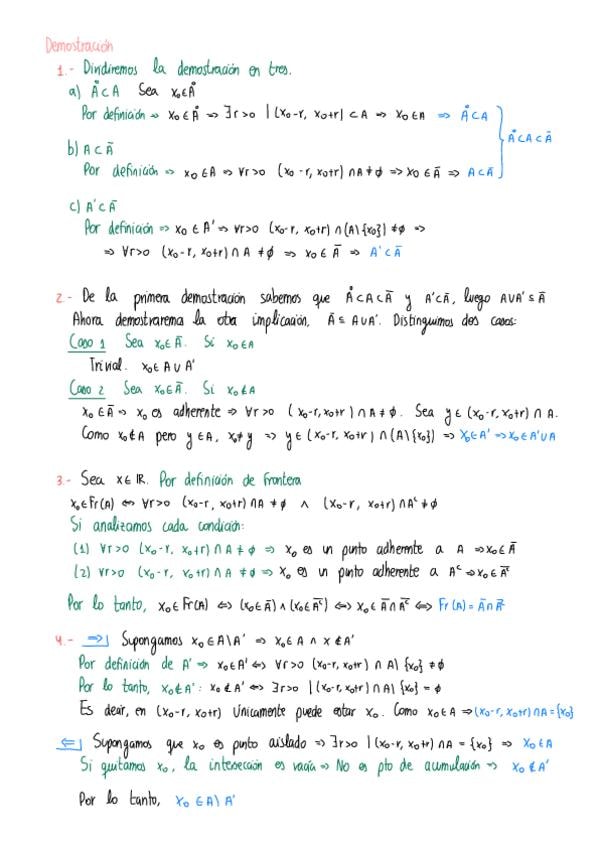 Demostración
1.- Dividiremos la demostración en tres.
a) Å ⊂ A Sea x₀ ∈ Å
Por definición ⇒ x₀ ∈ Å ⇒ ∃r>0 | (x₀-r, x₀+r) ⊂ A ⇒ x₀ ∈ A ⇒ Å ⊂ A
Å ⊂ A ⊂ Ā
b) A ⊂ Ā
Por definición ⇒ x₀ ∈ A ⇒ ∀r>0 (x₀-r, x₀+r) ∩ A ≠ ∅ ⇒ x₀ ∈ Ā ⇒ A ⊂ Ā
c) A' ⊂ Ā
Por definición ⇒ x₀ ∈ A' ⇒ ∀r>0 (x₀-r, x₀+r) ∩ (A\{x₀}) ≠ ∅ ⇒
⇒ ∀r>0 (x₀-r, x₀+r) ∩ A ≠ ∅ ⇒ x₀ ∈ Ā ⇒ A' ⊂ Ā
2.- De la primera demostración sabemos que Å ⊂ A ⊂ Ā y A' ⊂ Ā, luego A∪A' ⊆ Ā
Ahora demostrarema la otra implicación, Ā ⊆ A∪A'. Distinguimos dos casos:
Caso 1 Sea x₀ ∈ Ā. Si x₀ ∈ A
Trivial. x₀ ∈ A ∪ A'
Caso 2 Sea x₀ ∈ Ā. Si x₀ ∉ A
x₀ ∈ Ā ⇒ x₀ es adherente ⇒ ∀r>0 (x₀-r, x₀+r) ∩ A ≠ ∅. Sea y ∈ (x₀-r, x₀+r) ∩ A.
Como x₀ ∉ A pero y ∈ A, x₀ ≠ y ⇒ y ∈ (x₀-r, x₀+r) ∩ (A\{x₀}) ⇒ x₀ ∈ A' ⇒ x₀ ∈ A'∪A
3.- Sea x ∈ ℝ. Por definición de frontera
x₀ ∈ Fr(A) ⇔ ∀r>0 (x₀-r, x₀+r) ∩ A ≠ ∅ ∧ (x₀-r, x₀+r) ∩ Aᶜ ≠ ∅
Si analizamos cada condición:
(1) ∀r>0 (x₀-r, x₀+r) ∩ A ≠ ∅ ⇒ x₀ es un punto adhermte a A ⇒ x₀ ∈ Ā
(2) ∀r>0 (x₀-r, x₀+r) ∩ A ≠ ∅ ⇒ x₀ es un punto adherente a Aᶜ ⇒ x₀ ∈ A̅ᶜ
Por lo tanto, x₀ ∈ Fr(A) ⇔ (x₀ ∈ Ā) ∧ (x₀ ∈ A̅ᶜ) ⇔ x₀ ∈ Ā ∩ A̅ᶜ ⇔ Fr(A) = Ā ∩ A̅ᶜ
4.- ⇒| Supongamos x₀ ∈ A\A' ⇒ x₀ ∈ A ∧ x ∉ A'
Por definición de A' ⇒ x₀ ∈ A' ⇔ ∀r>0 (x₀-r, x₀+r) ∩ A\{x₀} ≠ ∅
Por lo tanto, x₀ ∉ A' : x₀ ∉ A' ⇔ ∃r>0 | (x₀-r, x₀+r) ∩ A\{x₀} = ∅
Es decir, en (x₀-r, x₀+r) únicamente puede estar x₀. Como x₀ ∈ A ⇒ (x₀-r, x₀+r) ∩ A = {x₀}
⇐| Supongamos que x₀ es punto aislado ⇒ ∃r>0 | (x₀-r, x₀+r) ∩ A = {x₀} ⇒ x₀ ∈ A
Si quitamos x₀, la intersección es vacía ⇒ No es pto de acumulación ⇒ x₀ ∉ A'
Por lo tanto, x₀ ∈ A\A'